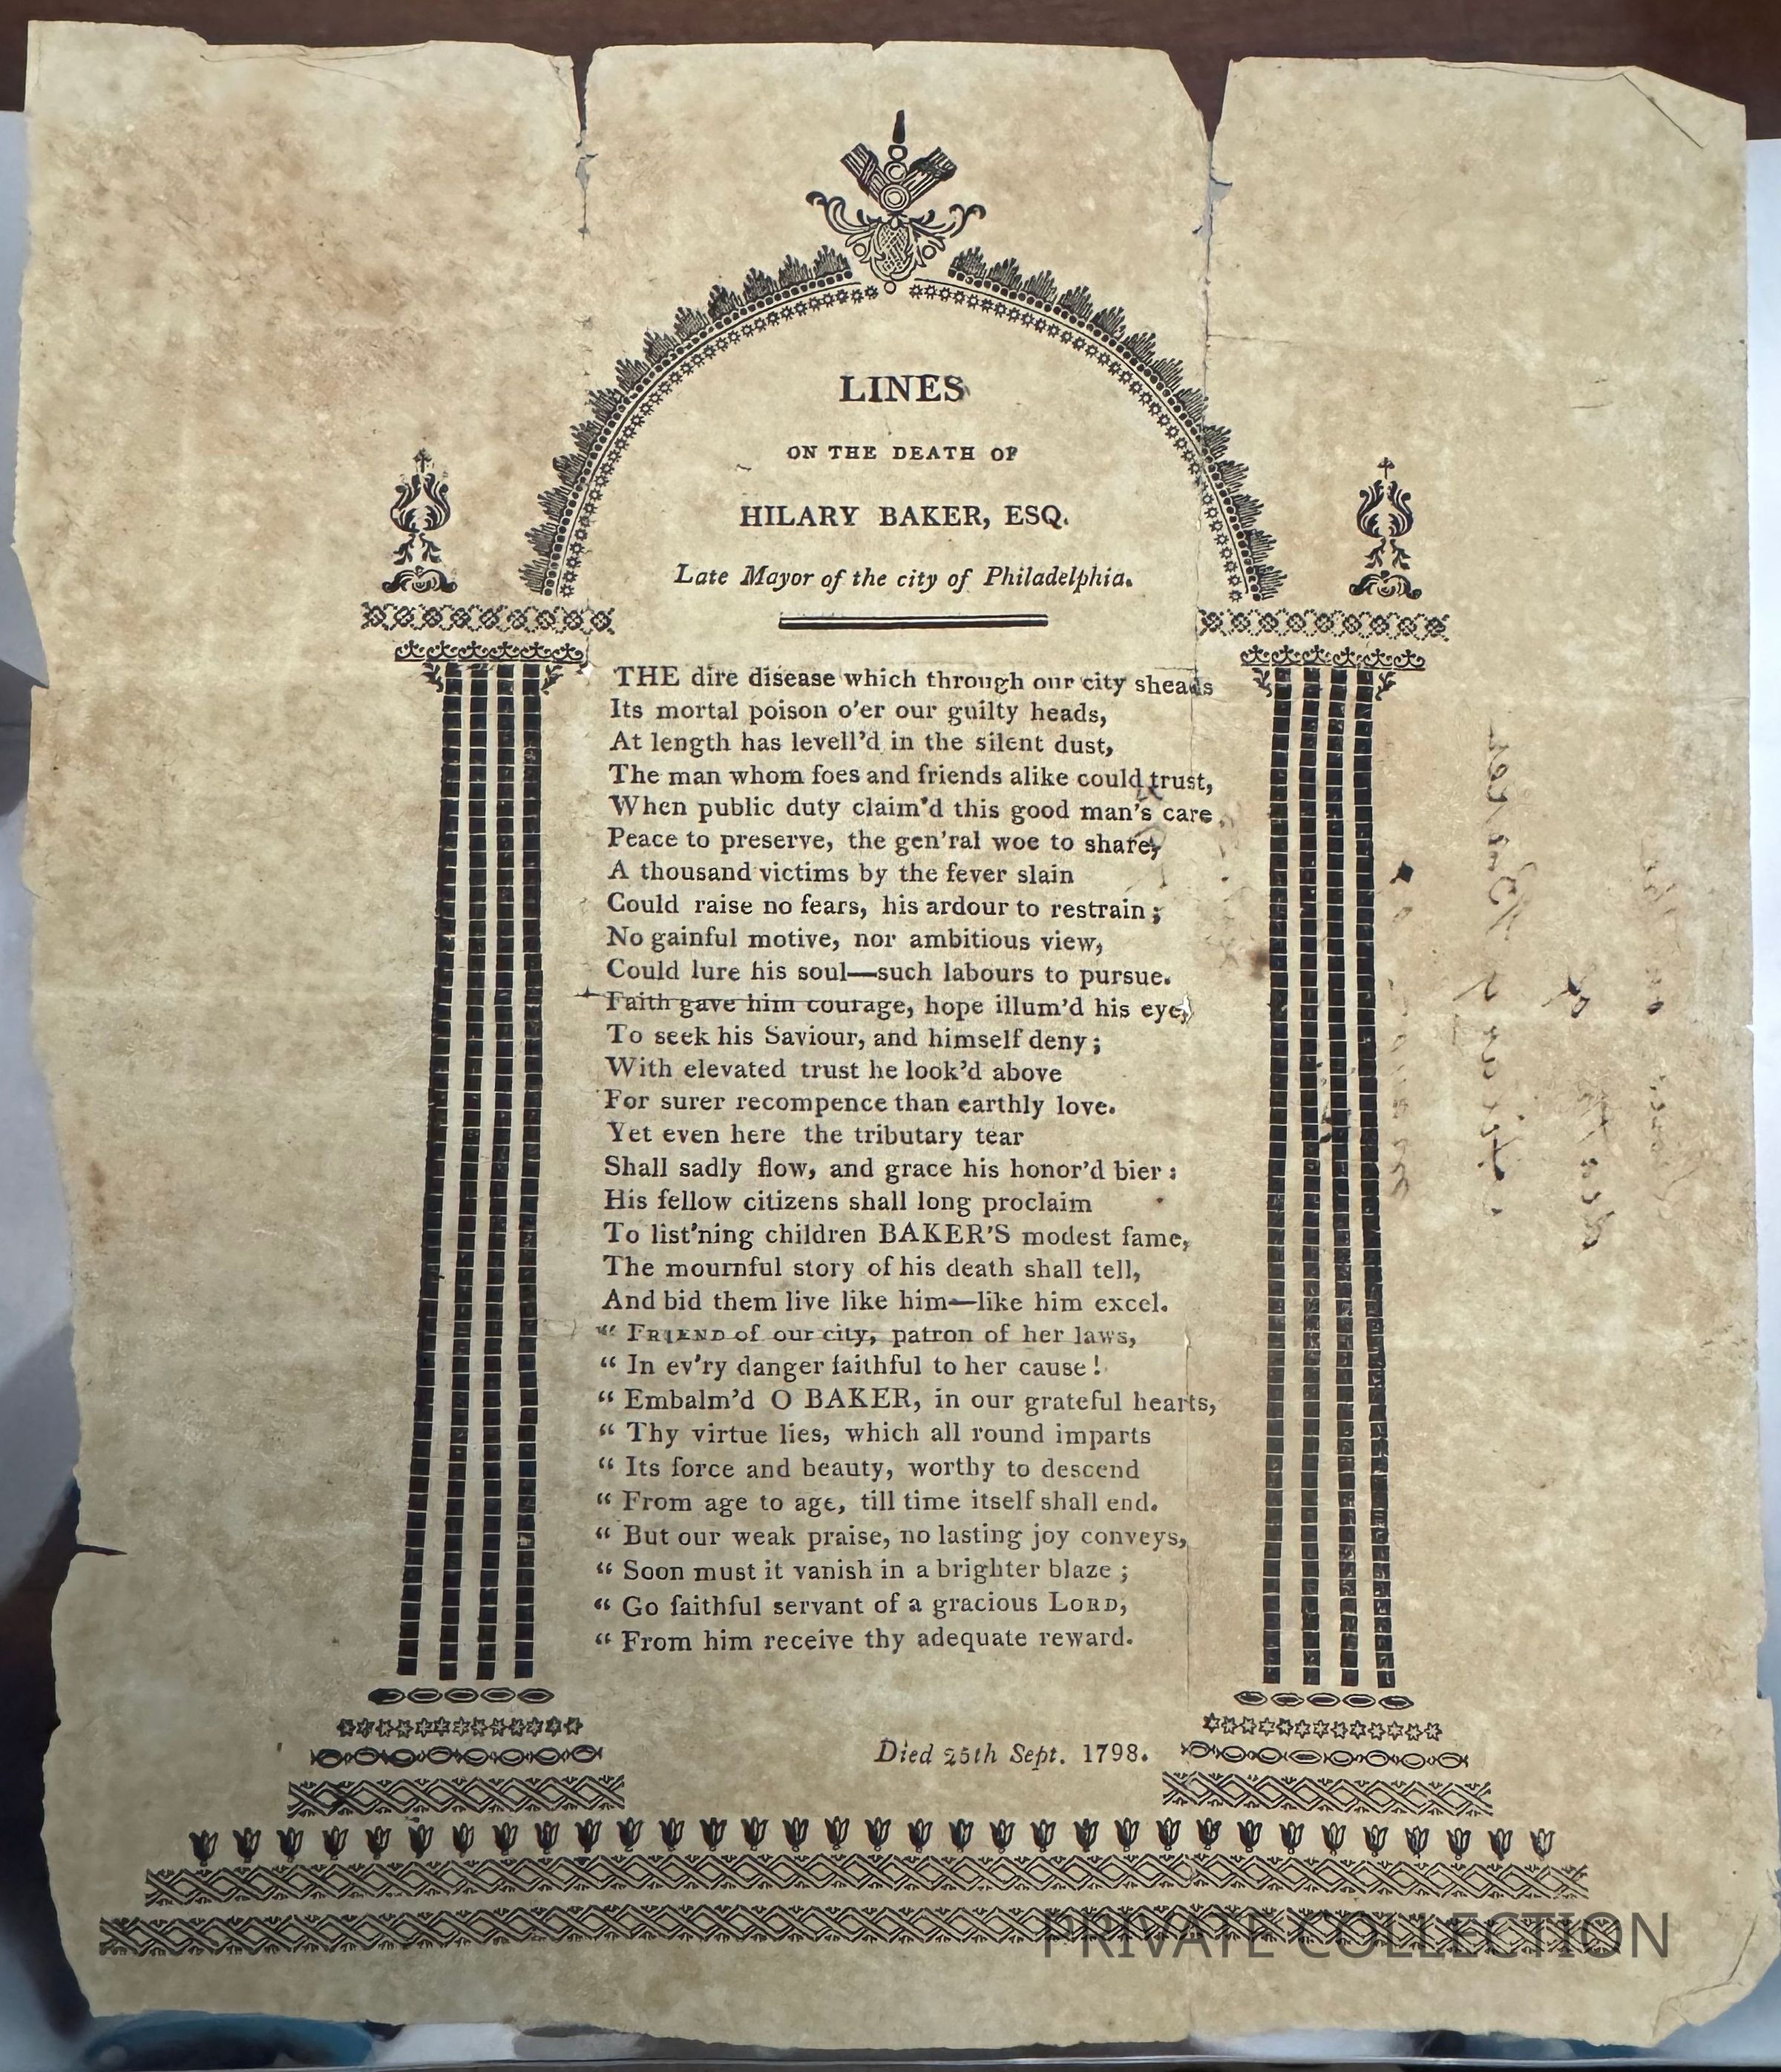 LINES
ON THE DEATH OF
HILARY BAKER, ESQ.
Late Mayor of the city of Philadelphia.
THE dire disease which through our city sheads
Its mortal poison o'er our guilty heads,
At length has levell'd in the silent dust,
The man whom foes and friends alike could trust,
When public duty claim'd this good man's care,
Peace to preserve, the gen'ral woe to share,
A thousand victims by the fever slain
Could raise no fears, his ardour to restrain;
No gainful motive, nor ambitious view,
Could lure his soul—such labours to pursue.
Faith gave him courage, hope illum'd his eye,
To seek his Saviour, and himself deny;
With elevated trust he look'd above
For surer recompence than earthly love.
Yet even here the tributary tear
Shall sadly flow, and grace his honor'd bier:
His fellow citizens shall long proclaim
To list'ning children BAKER'S modest fame,
The mournful story of his death shall tell,
And bid them live like him—like him excel.
“ FRIEND of our city, patron of her laws,
“ In ev'ry danger faithful to her cause!
“ Embalm'd O BAKER, in our grateful hearts,
“ Thy virtue lies, which all round imparts
“ Its force and beauty, worthy to descend
“ From age to age, till time itself shall end.
“ But our weak praise, no lasting joy conveys,
“ Soon must it vanish in a brighter blaze;
“ Go faithful servant of a gracious LORD,
“ From him receive thy adequate reward.
Died 25th Sept. 1798.
PRIVATE COLLECTION